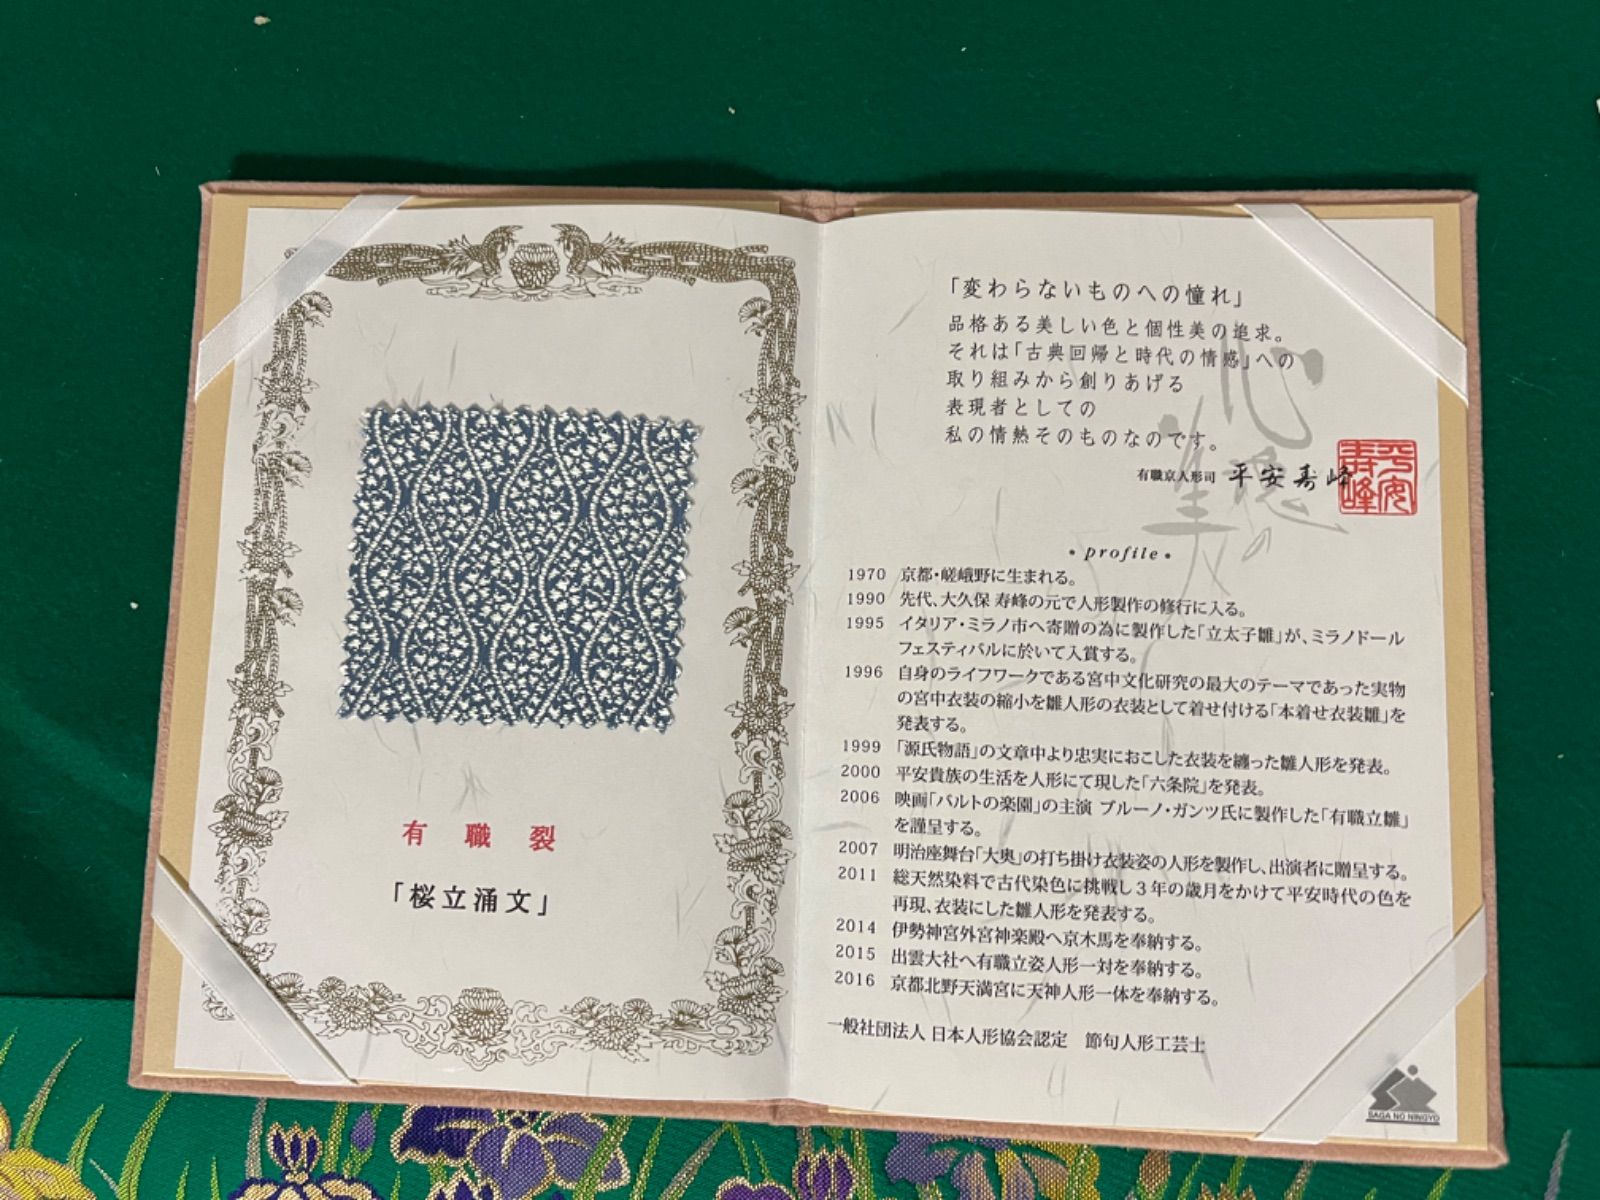 有職裂
「桜立涌文」
「変わらないものへの憧れ」
品格ある美しい色と個性美の追求。
それは「古典回帰と時代の情感」への
取り組みから創りあげる
表現者としての
私の情熱そのものなのです。
有職京人形司 平安寿峰
平安寿峰
・profile・
1970 京都・嵯峨野に生まれる。
1990 先代、大久保 寿峰の元で人形製作の修行に入る。
1995 イタリア・ミラノ市へ寄贈の為に製作した「立太子雛」が、ミラノドール
フェスティバルに於いて入賞する。
1996 自身のライフワークである宮中文化研究の最大のテーマであった実物
の宮中衣装の縮小を雛人形の衣装として着せ付ける「本着せ衣装雛」を
発表する。
1999 「源氏物語」の文章中より忠実におこした衣装を纏った雛人形を発表。
2000 平安貴族の生活を人形にて現した「六条院」を発表。
2006 映画「バルトの楽園」の主演 ブルーノ・ガンツ氏に製作した「有職立雛」
を謹呈する。
2007 明治座舞台「大奥」の打ち掛け衣装姿の人形を製作し、出演者に贈呈する。
2011 総天然染料で古代染色に挑戦し3年の歳月をかけて平安時代の色を
再現、衣装にした雛人形を発表する。
2014 伊勢神宮外宮神楽殿へ京木馬を奉納する。
2015 出雲大社へ有職立姿人形一対を奉納する。
2016 京都北野天満宮に天神人形一体を奉納する。
一般社団法人 日本人形協会認定 節句人形工芸士
SAGA NO NINGYO